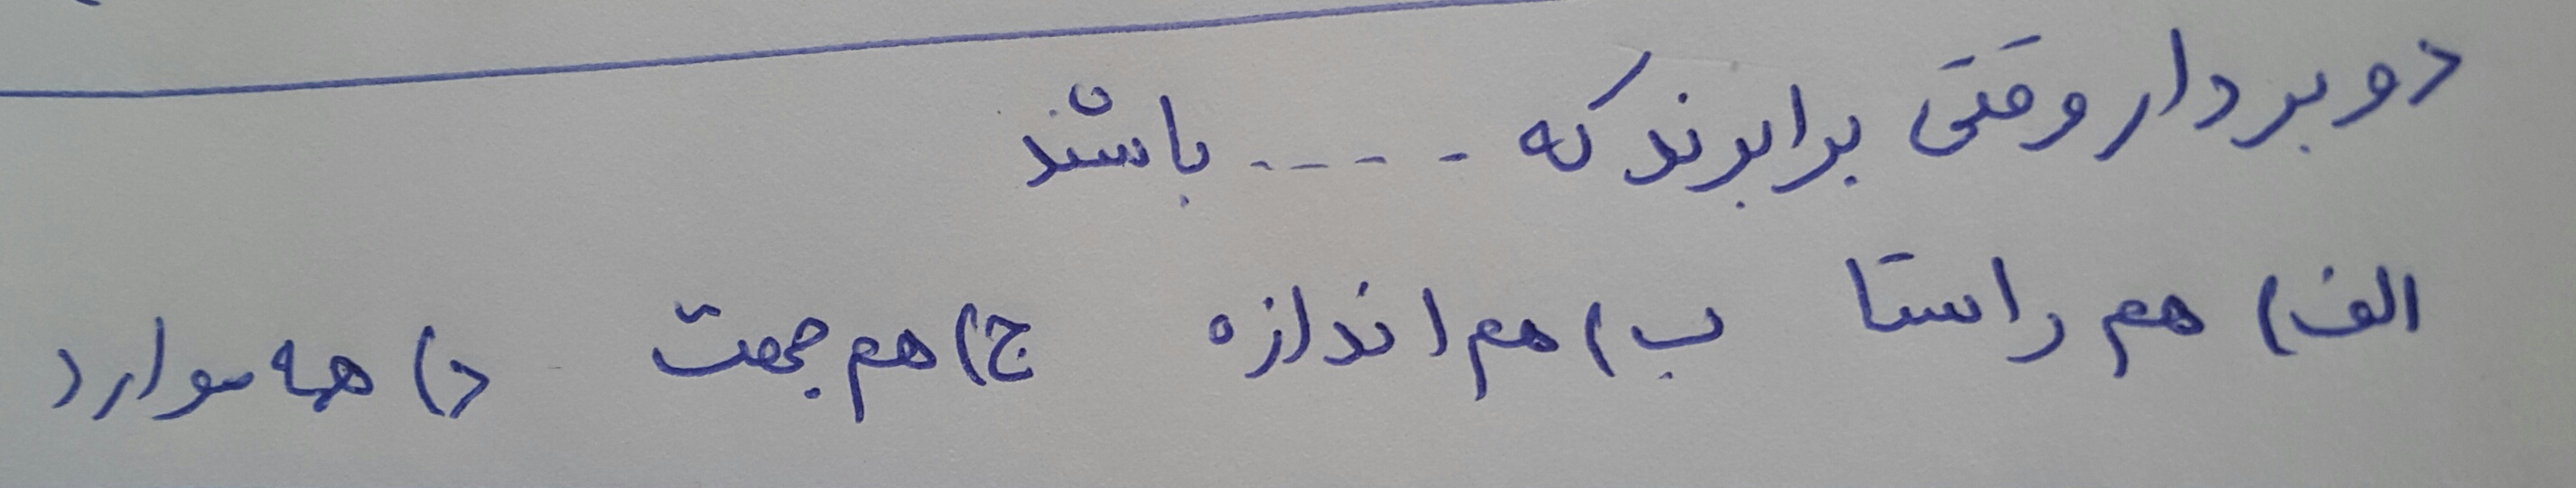 دو بردار وقتی برابرند که ----- باشند
الف) هم راستا ب) هم اندازه ج) هم جهت د) همه موارد